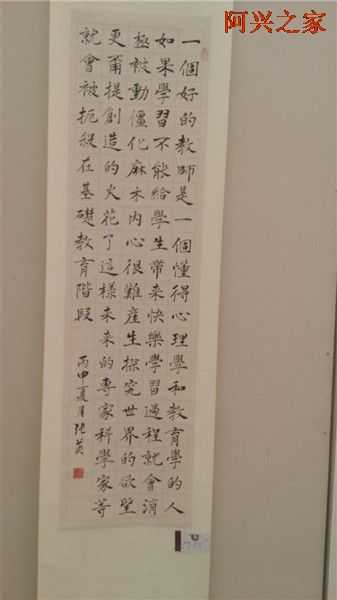 阿兴之家
一個好的教師是一個懂得心理學和教育學的人
如果學習不能給學生帶來快樂學習過程就會消
極被動僵化麻木内心很難產生探究世界的欲望
更甭提創造的火花了這樣未來的專家科學家等
就會被扼殺在基礎教育階段
丙申夏月張英